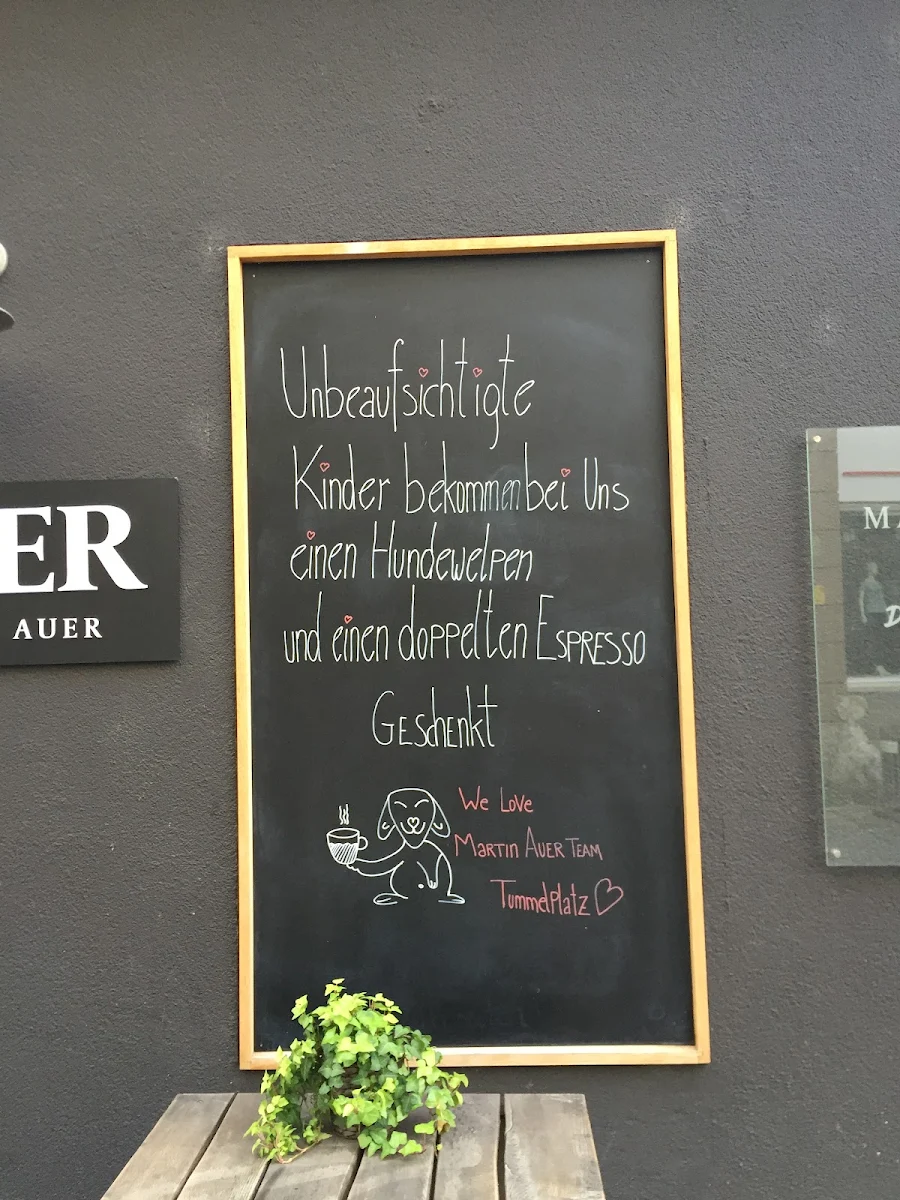 Unbeaufsichtigte
Kinder bekommen bei Uns
einen Hundewelpen
und einen doppelten ESPRESSO
GESchENKT
We Love
MARTIN AUER TEAM
TummelPlatz
ER
AUER
MA
D